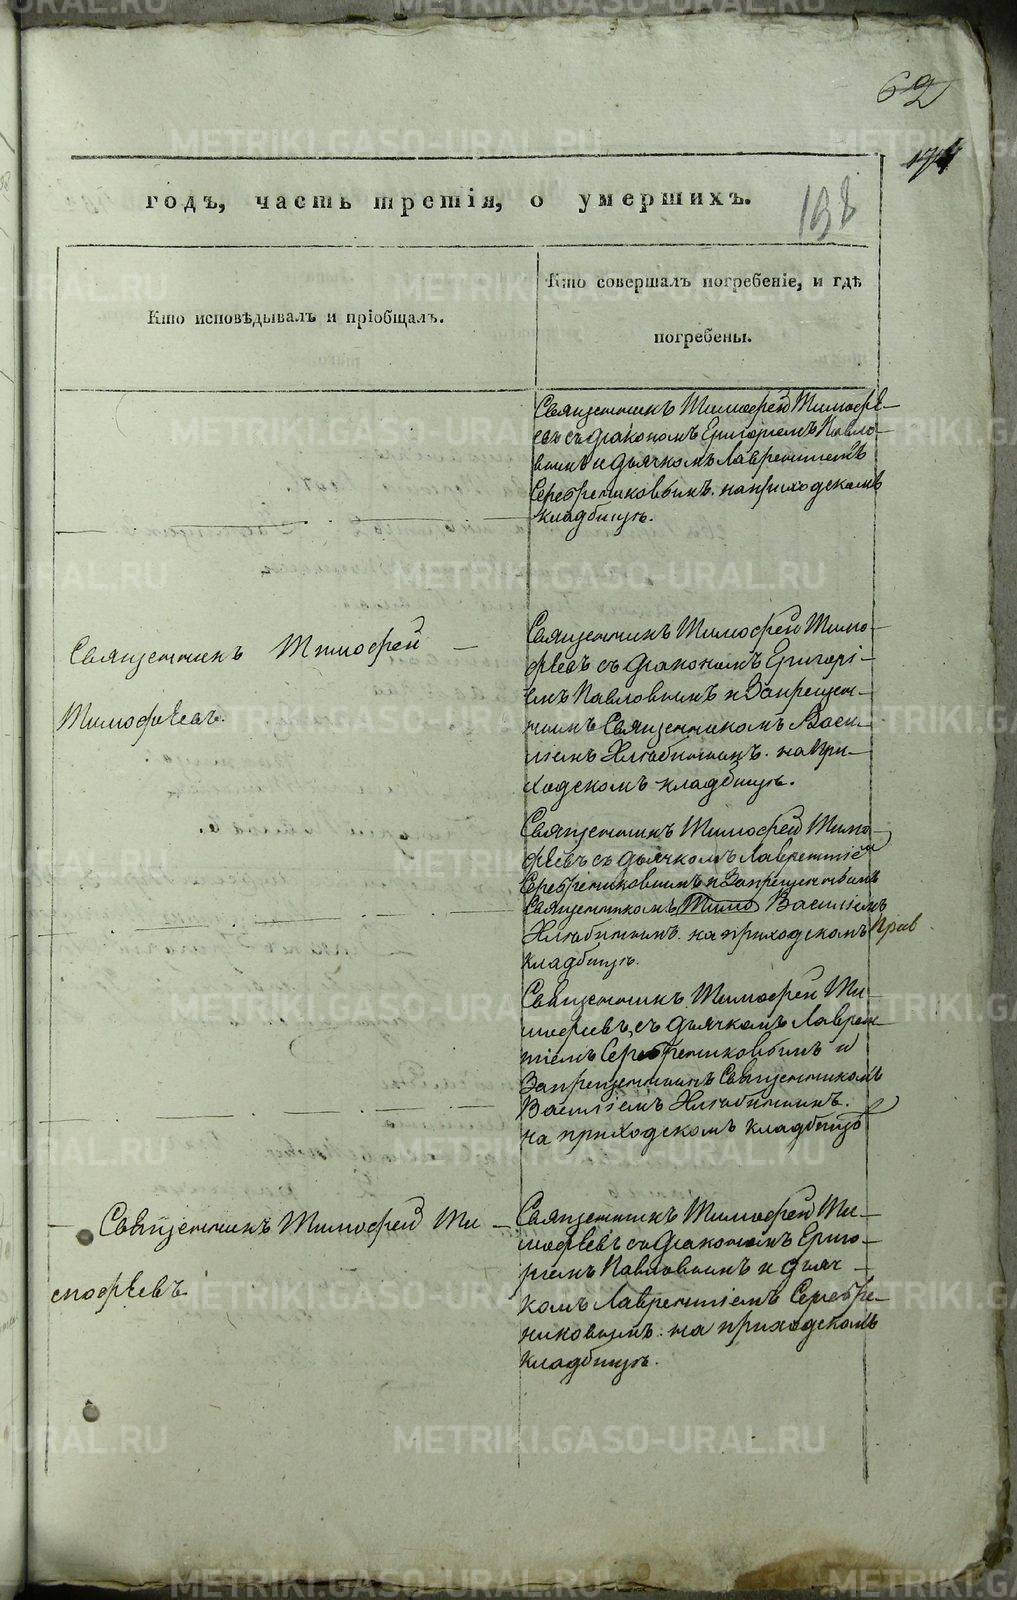 62
годъ, часть третія, о умершихъ.
138
Кто исповѣдывалъ и пріобщалъ.
Кто совершалъ погребеніе, и гдѣ
погребены.
Священникъ Тимофей Тимофѣ-
евъ съ діакономъ Григоріемъ Павло-
вымъ и дьячкомъ Лаврентіемъ
Серебрениковымъ. на приходскомъ
кладбищѣ.
Священникъ Тимофей
Тимофѣевъ.
Священникъ Тимофей Тимо-
фѣевъ съ діакономъ Григорі-
емъ Павловымъ и Запрещен-
нымъ Священникомъ Васи-
ліемъ Хлюбинымъ. на при-
ходскомъ кладбищѣ.
Священникъ Тимофей Тимо-
фѣевъ съ дьячкомъ Лаврентіе
Серебрениковымъ и Запрещеннымъ
Священникомъ Тимо Василіемъ
Хлюбинымъ. на приходскомъ
кладбищѣ.
Священникъ Тимофей Ти-
мофѣевъ, съ дьячкомъ Лаврен-
тіемъ Серебрениковымъ и
Запрещеннымъ Священникомъ
Василіемъ Хлюбинымъ.
на приходскомъ кладбищѣ
Священникъ Тимофей Ти-
мофѣевъ
Священникъ Тимофей Ти-
мофѣевъ съ діакономъ Григо-
ріемъ Павловымъ и дьяч-
комъ Лаврентіемъ Серебре-
никовымъ. на приходскомъ
кладбищѣ.
METRIKI.GASO-URAL.RU